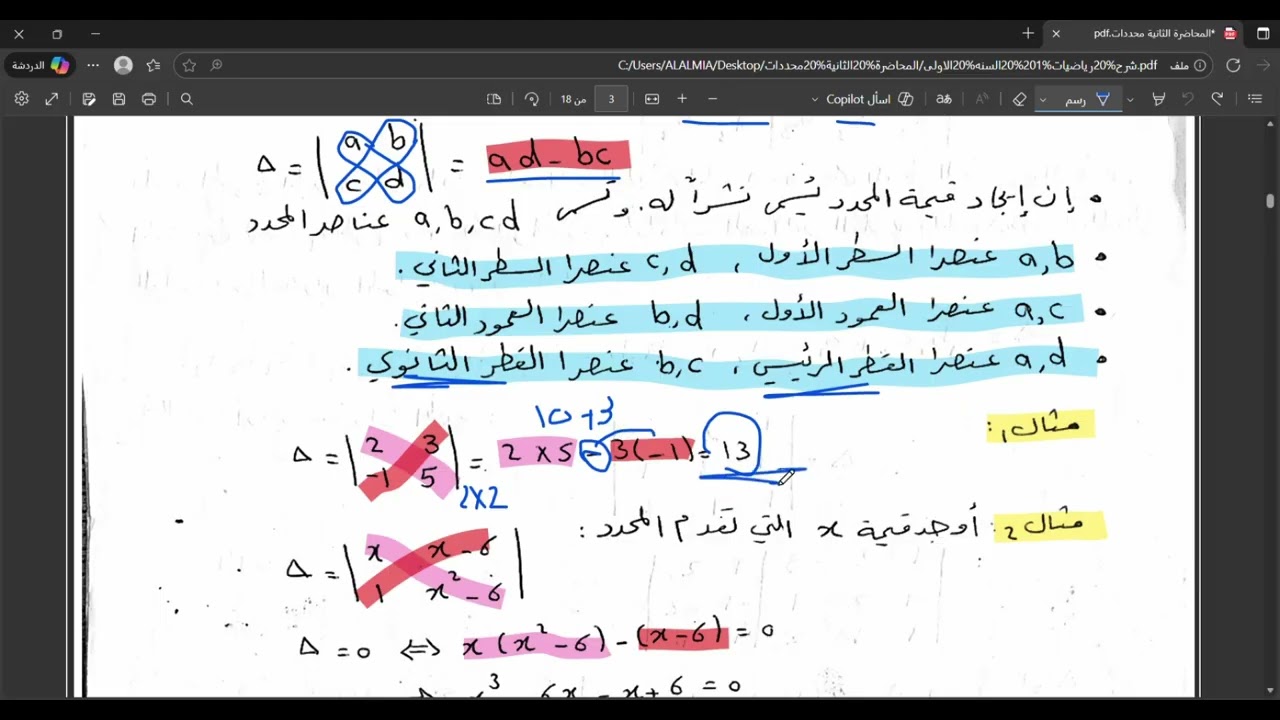 *المحاضرة الثانية محددات.pdf
الدردشة
ملف
C:/Users/ALALMIA/Desktop/شرح%20رياضيات%201%20السنه%20الاولى/المحاضرة%20الثانية%20محددات.pdf
3 من 18
اسأل Copilot
رسم
Δ = | a b | = ad - bc
| c d |
• إن إيجاد قيمة المحدد يُسمى نشراً له. وتسمى a, b, c d عناصر المحدد
• a, b عنصرا السطر الأول ، c, d عنصرا السطر الثاني .
• a, c عنصرا العمود الأول ، b, d عنصرا العمود الثاني.
• a, d عنصرا القطر الرئيسي ، b, c عنصرا القطر الثانوي .
مثال 1 :
10 + 3
Δ = | 2 3 | = 2 × 5 - 3(-1) = 13
| -1 5 | 2×2
مثال 2 : أوجد قيمة x التي تعدم المحدد :
Δ = | x x - 6 |
| 1 x² - 6 |
Δ = 0 ⟺ x (x² - 6) - (x - 6) = 0
x³ 6x - x + 6 = 0